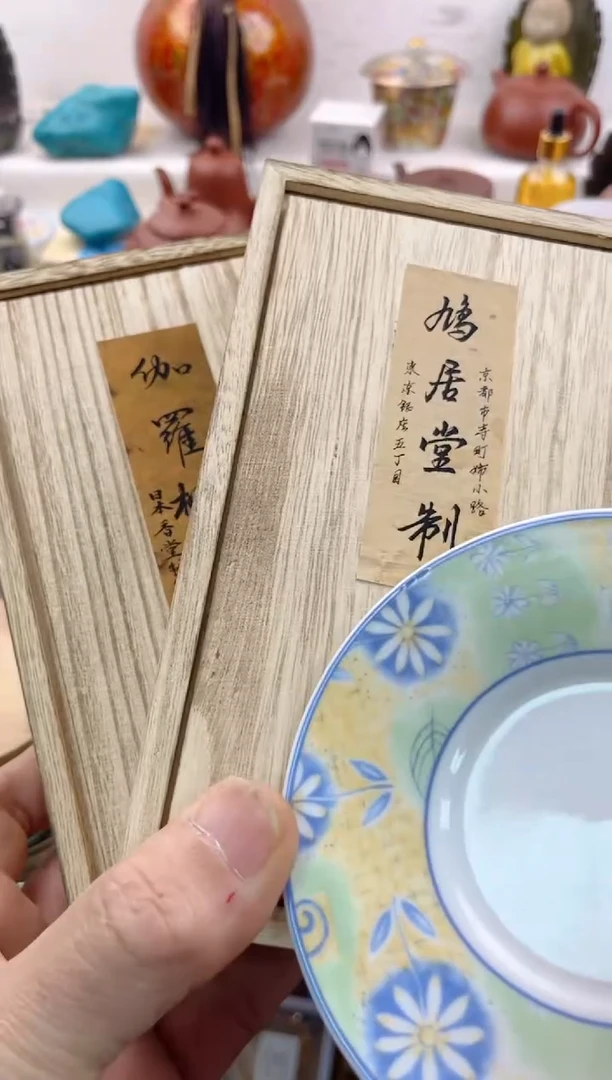 京都市寺町姉小路
鳩居堂制
東京銀座五丁目
伽羅
日本香堂